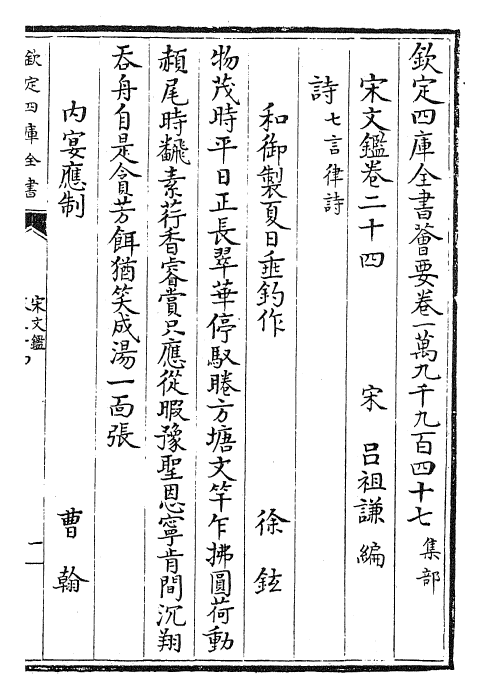 欽定四庫全書薈要卷一萬九千九百四十七 集部
宋文鑑卷二十四 宋 呂祖謙 編
詩 七言律詩
和御製夏日垂釣作 徐鉉
物茂時平日正長翠華停馭睠方塘文竿乍拂圓荷動
頳尾時翻素荇香睿賞只應從暇豫聖恩寧肯間沉翔
吞舟自是貪芳餌猶笑成湯一面張
内宴應制 曹翰
欽定四庫全書
宋文鑑
一